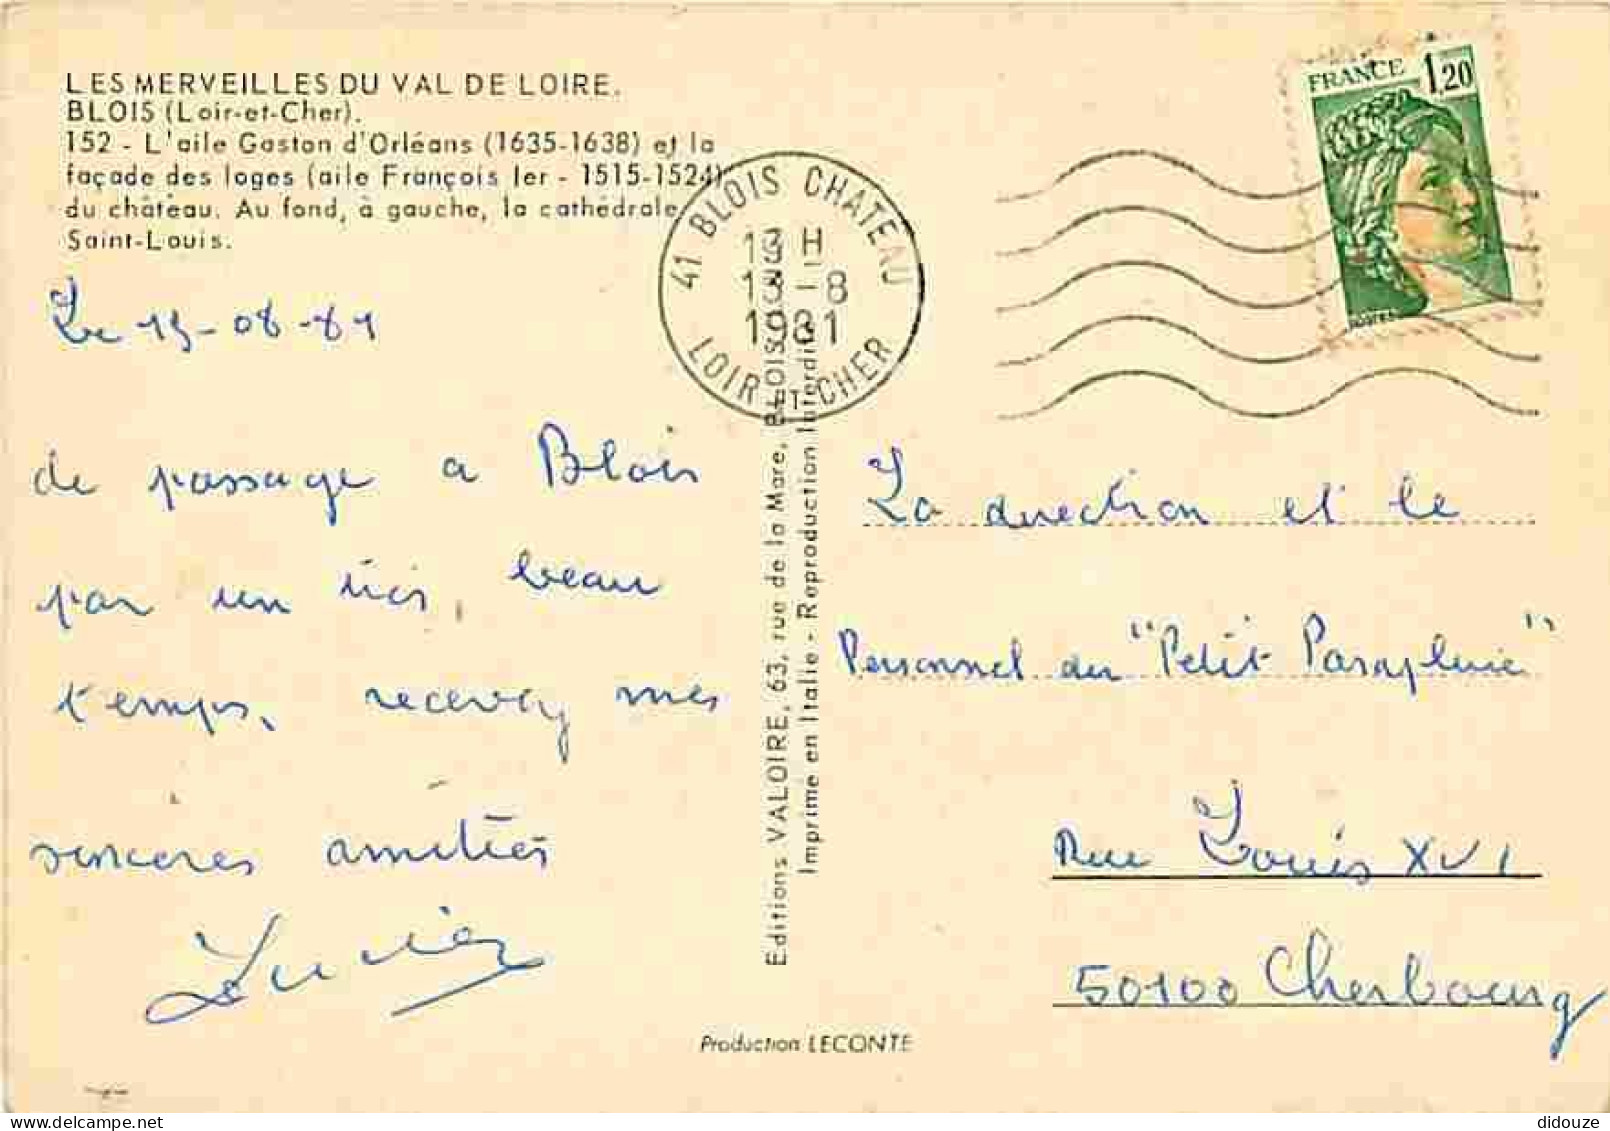 LES MERVEILLES DU VAL DE LOIRE.
BLOIS (Loir-et-Cher).
152 - L'aile Gaston d'Orléans (1635-1638) et la
façade des loges (aile François Ier - 1515-1524)
du château. Au fond, à gauche, la cathédrale
Saint-Louis.
FRANCE 1,20
POSTES
41 BLOIS CHATEAU
13 H
13-8
1981
LOIR ET CHER
Le 13-08-81
de passage a Blois
par un très, beau
temps, recevez mes
sincères amitiés
Lucien
Editions VALOIRE, 63, rue de la Mare, BLOIS
Imprimé en Italie - Reproduction interdite
La direction et le
Personnel du "Petit Parapluie"
Rue Louis XVI
50100 Cherbourg
Production LECONTE
didouze